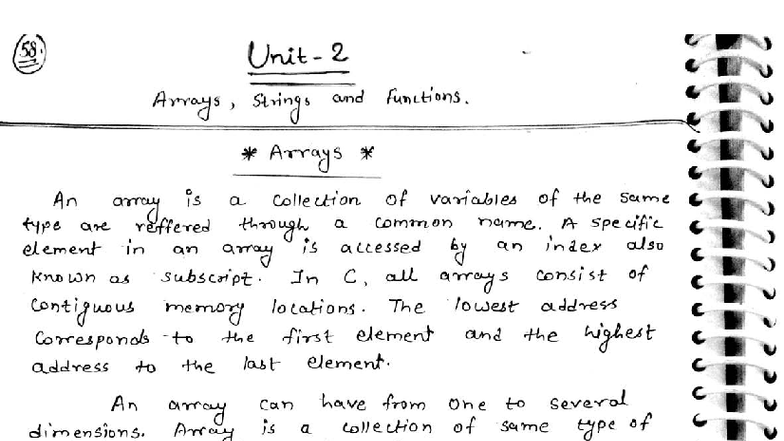 58
Unit - 2
Arrays, Strings and Functions.
* Arrays *
An array is a collection of variables of the same
type are reffered through a common name. A specific
element in an array is accessed by an index also
known as subscript. In C, all arrays consist of
contiguous memory locations. The lowest address
corresponds to the first element and the highest
address to the last element.
An array can have from one to several
dimensions. Array is a collection of same type of